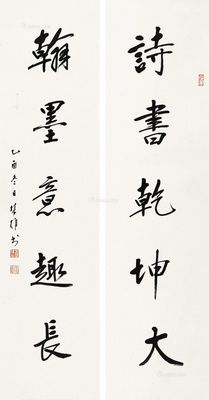 詩書乾坤大
翰墨意趣長
乙酉冬日